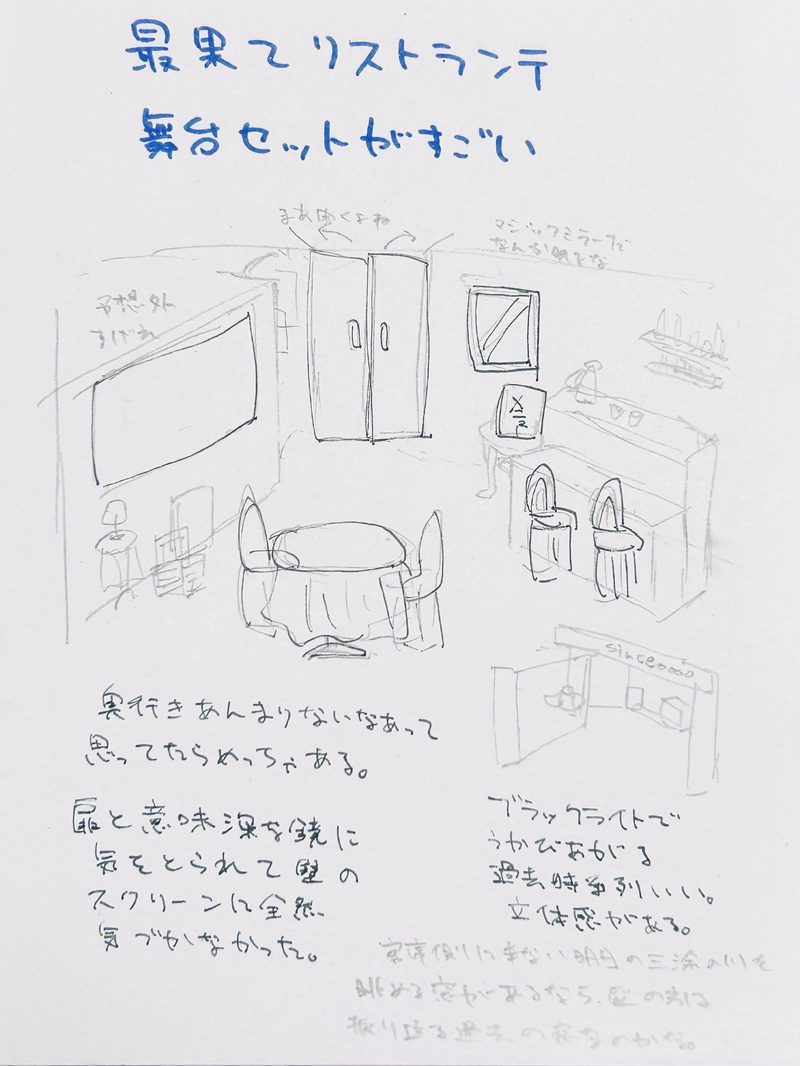 最果てリストランテ
舞台セットがすごい
まあ開くよね
マジックミラーで
なんか映るな
予想外
すぎた
since0000
奥行きあんまりないなあって
思ってたらめっちゃある。
扉と意味深な鏡に
気をとられて壁の
スクリーンに全然
気づかなかった。
ブラックライトで
うかびあがる
過去時系列いい。
立体感がある。
客席側に来ない明日の三途の川を
眺める窓があるなら、壁の方は
振り返る過去の窓なのかな。